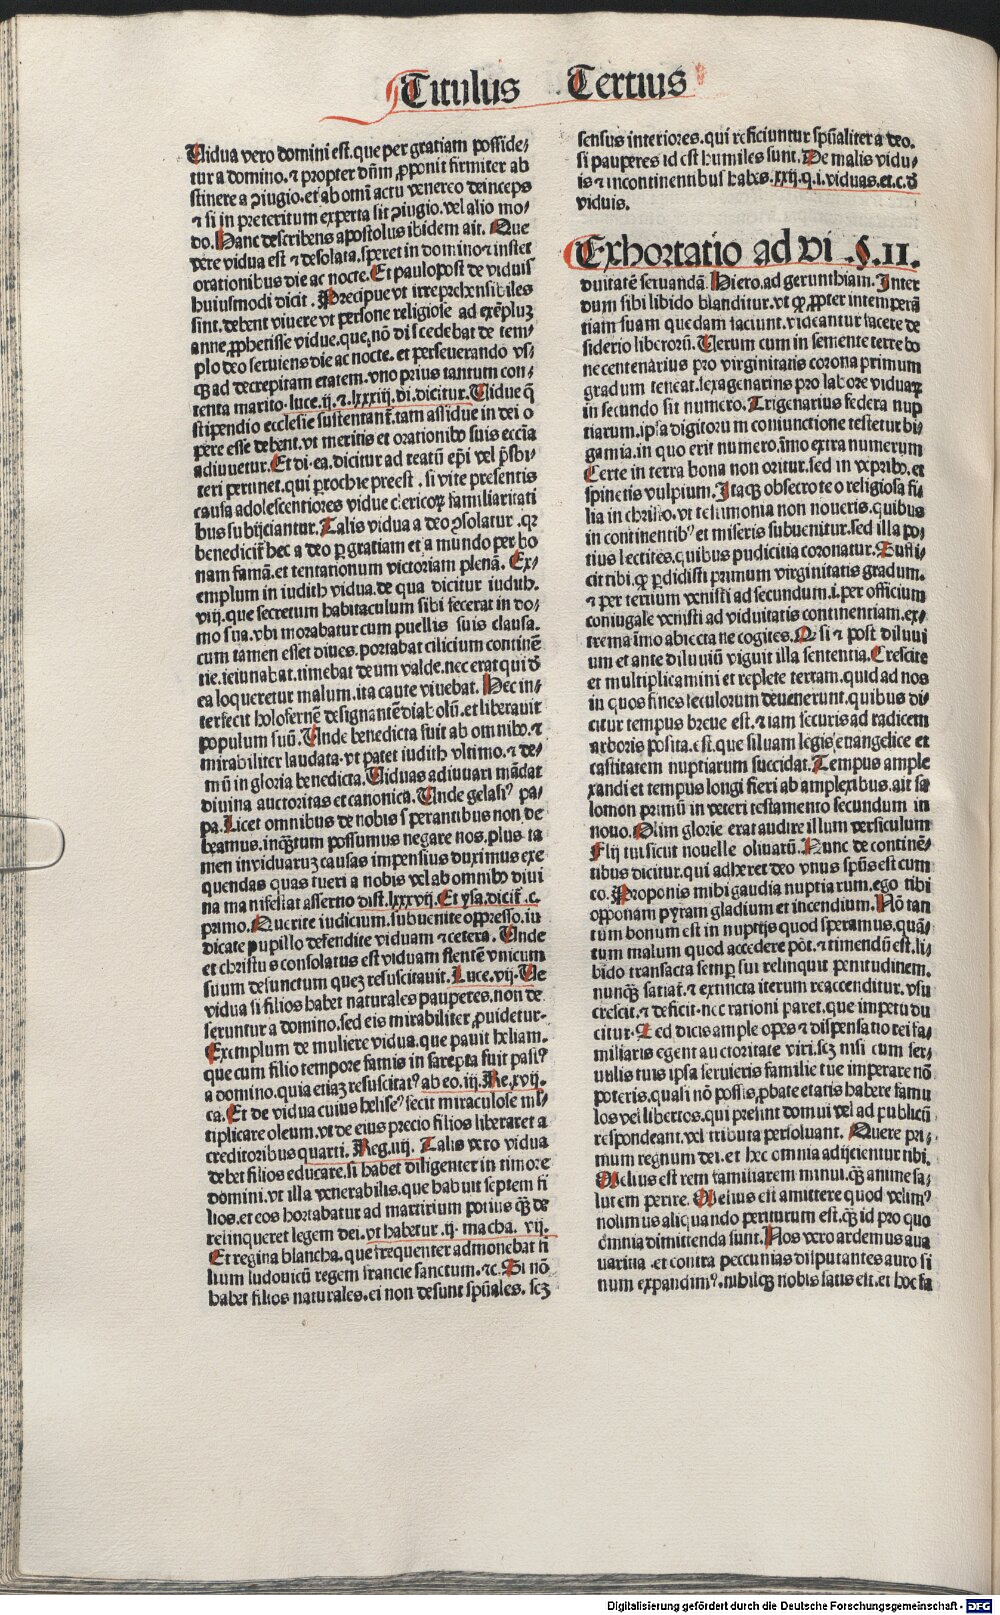 Titulus Tertius
Uidua vero domini est. que per gratiam posside⸗
tur a domino. ⁊ propter dn̄m ꝓponit firmiter ab
stinere a ꝯiugio. et ab om̄i actu venereo deinceps
⁊ si in preteritum experta sit ꝯiugio. vel alio mo⸗
do. Hanc describens apostolus ibidem ait. Que
vere vidua est ⁊ desolata. speret in domino ⁊ instet
orationibus die ac nocte. Et paulopost de viduis
huiusmodi dicit. Precipue vt irreprehensibiles
sint. debent viuere vt persone religiose ad exēpluꝫ
anne ꝓphetisse vidue. que. nō discedebat de tem⸗
plo deo seruiens die ac nocte. et perseuerando vs⸗
qꝫ ad decrepitam etatem. vno prius tantum con⸗
tenta marito. luce. ij. ⁊. lxxxiij. di. dicitur. Uidue q̄
stipendio ecclesie sustentant̄. tam assidue in dei o
pere esse debent. vt meritis et orationibꝰ suis ecc̄ia
adiuuetur. Et di. ea. dicitur ad reatū ep̄i vel p̄sbi⸗
teri pertinet. qui ꝑrochie preest. si vite presentis
causa adolescentiores vidue clericoꝝ familiaritati
bus subijciantur. Talis vidua a deo ꝯsolatur. qꝛ
benedicit̄ hec a deo ꝑ gratiam et a mundo per bo
nam famā. et tentationum victoriam plenā. Ex⸗
emplum in iudith vidua. de qua dicitur iudith.
viij. que secretum habitaculum sibi fecerat in do⸗
mo sua. vbi morabatur cum puellis suis clausa.
cum tamen esset diues. portabat cilicium continē
tie. ieiunabat. timebat deum valde. nec erat qui ð
ea loqueretur malum. ita caute viuebat. Hec in⸗
terfecit holofernē designantē diabolū. et liberauit
populum suū. Unde benedicta fuit ab omnibꝰ. ⁊
mirabiliter laudata. vt patet iudith vltimo. ⁊ de⸗
mū in gloria benedicta. Uiduas adiuuari mādat
diuina auctoritas et canonica. Unde gelasiꝰ pa⸗
pa. Licet omnibus de nobis sperantibus non de
beamus. inqꝫtum possumus negare nos. plus ta
men in viduaruꝫ causas impensius duximus exe
quendas quas tueri a nobis vel ab omnibꝰ diui
na manifestat assertio dist. lxxxvij. Et ysa. dicit̄. c.
primo. Querite iudicium. subuenite oppresso. iu
dicate pupillo defendite viduam ⁊ cetera. Unde
et christus consolatus est viduam flentē vnicum
suum defunctum queꝫ resuscitauit. Luce. vij. De
vidua si filios habet naturales pauperes. non de
seruntur a domino. sed eis mirabiliter ꝓuidetur.
Exemplum de muliere vidua. que pauit heliam.
que cum filio tempore famis in sarepta fuit pastꝰ
a domino. quia etiaꝫ resuscitatꝰ ab eo. iij. Re. xvij.
ca. Et de vidua cuius heliseꝰ fecit miraculose ml̄⸗
tiplicare oleum. vt de eius precio filios liberaret a
creditoribus quarti. Reg. iiij. Talis vero vidua
debet filios educare. si habet diligenter in timore
domini. vt illa venerabilis. que habuit septem fi
lios. et eos hortabatur ad martirium potius qꝫ de
relinqueret legem dei. vt habetur. ij. macha. vij.
Et regina blancha. que frequenter admonebat fi
lium ludouicū regem francie sanctum. ⁊c. Si nō
habet filios naturales. ei non desunt spūales. scꝫ
sensus interiores. qui reficiuntur spūaliter a deo.
si pauperes id est humiles sunt. De malis vidu⸗
is ⁊ incontinentibus habes. xxij. q. i. viduas. et. c. ð
viduis.
Exhortatio ad vi .§. II.
duitatē seruandā. Hiero. ad gerunthiam. Inter
dum sibi libido blanditur. vt ꝙ ꝓpter intemperā
tiam suam quedam faciunt. videantur facere de
siderio liberorū. Uerum cum in semente terre bo
ne centenarius pro virginitatis corona primum
gradum teneat. sexagenarius pro labore viduaꝝ
in secundo sit numero. Trigenarius federa nup
tiarum. ipsa digitorum coniunctione testetur bi⸗
gamia. in quo erit numero. īmo extra numerum
Certe in terra bona non oritur. sed in vepribꝰ. et
spinetis vulpium. Itaqꝫ obsecro te o religiosa fi⸗
lia in christo. vt testimonia non noueris. quibus
in continentibꝰ et miseris subuenitur. sed illa po⸗
tius lectites. quibus pudicitia coronatur. Suffi⸗
cit tibi. ꝙ ꝑdidisti primum virginitatis gradum.
⁊ per tertium venisti ad secundum. i. per officium
coniugale venisti ad viduitatis continentiam. ex⸗
trema īmo abiecta ne cogites. Q si ⁊ post diluui
um et ante diluuiū viguit illa sententia. Crescite
et multiplicamini et replete terram. quid ad nos
in quos fines seculorum deuenerunt. quibus di⸗
citur tempus breue est. ⁊ iam securis ad radicem
arboris posita. est. que siluam legis euangelice et
castitatem nuptiarum succidat. Tempus ample
xandi et tempus longi fieri ab amplexibus. ait sa
lomon primū in veteri testamento secundum in
nouo. Olim glorie erat audire illum versiculum
Filij tui sicut nouelle oliuarū. Nunc de continē⸗
tibus dicitur. qui adheret deo vnus spūs est cum
eo. Proponis mihi gaudia nuptiarum. ego tibi
opponam pyram gladium et incendium. Nō tan
tum bonum est in nuptijs quod speramus. quā⸗
tum malum quod accedere pōt. ⁊ timendū est. li⸗
bido transacta semꝑ sui relinquit penitudinem.
nunqꝫ satiat̄. ⁊ extincta iterum reaccenditur. vsu
crescit. ⁊ deficit. nec rationi paret. que impetu du
citur. Sed dicis ample opes ⁊ dispensatio rei fa⸗
miliaris egent auctoritate viri. scꝫ nisi cum ser⸗
uulis tuis ipsa seruieris familie tue imperare nō
poteris. quali nō possis ꝓbate etatis habere famu
los vel libertos. qui presint domui vel ad publicū
respondeant. vel tributa persoluant. Quere pri⸗
mum regnum dei. et hec omnia adijcientur tibi.
Melius est rem familiarem minui. qꝫ anime sa⸗
lutem perire. Melius est amittere quod velimꝰ
nolimus aliquando periturum est. qꝫ id pro quo
omnia dimittenda sunt. Nos vero ardemus aua
uaritia. et contra peccunias disputantes auro si
num expandimꝰ. nihilqꝫ nobis satis est. et hoc fa
Digitalisierung gefördert durch die Deutsche Forschungsgemeinschaft - DFG